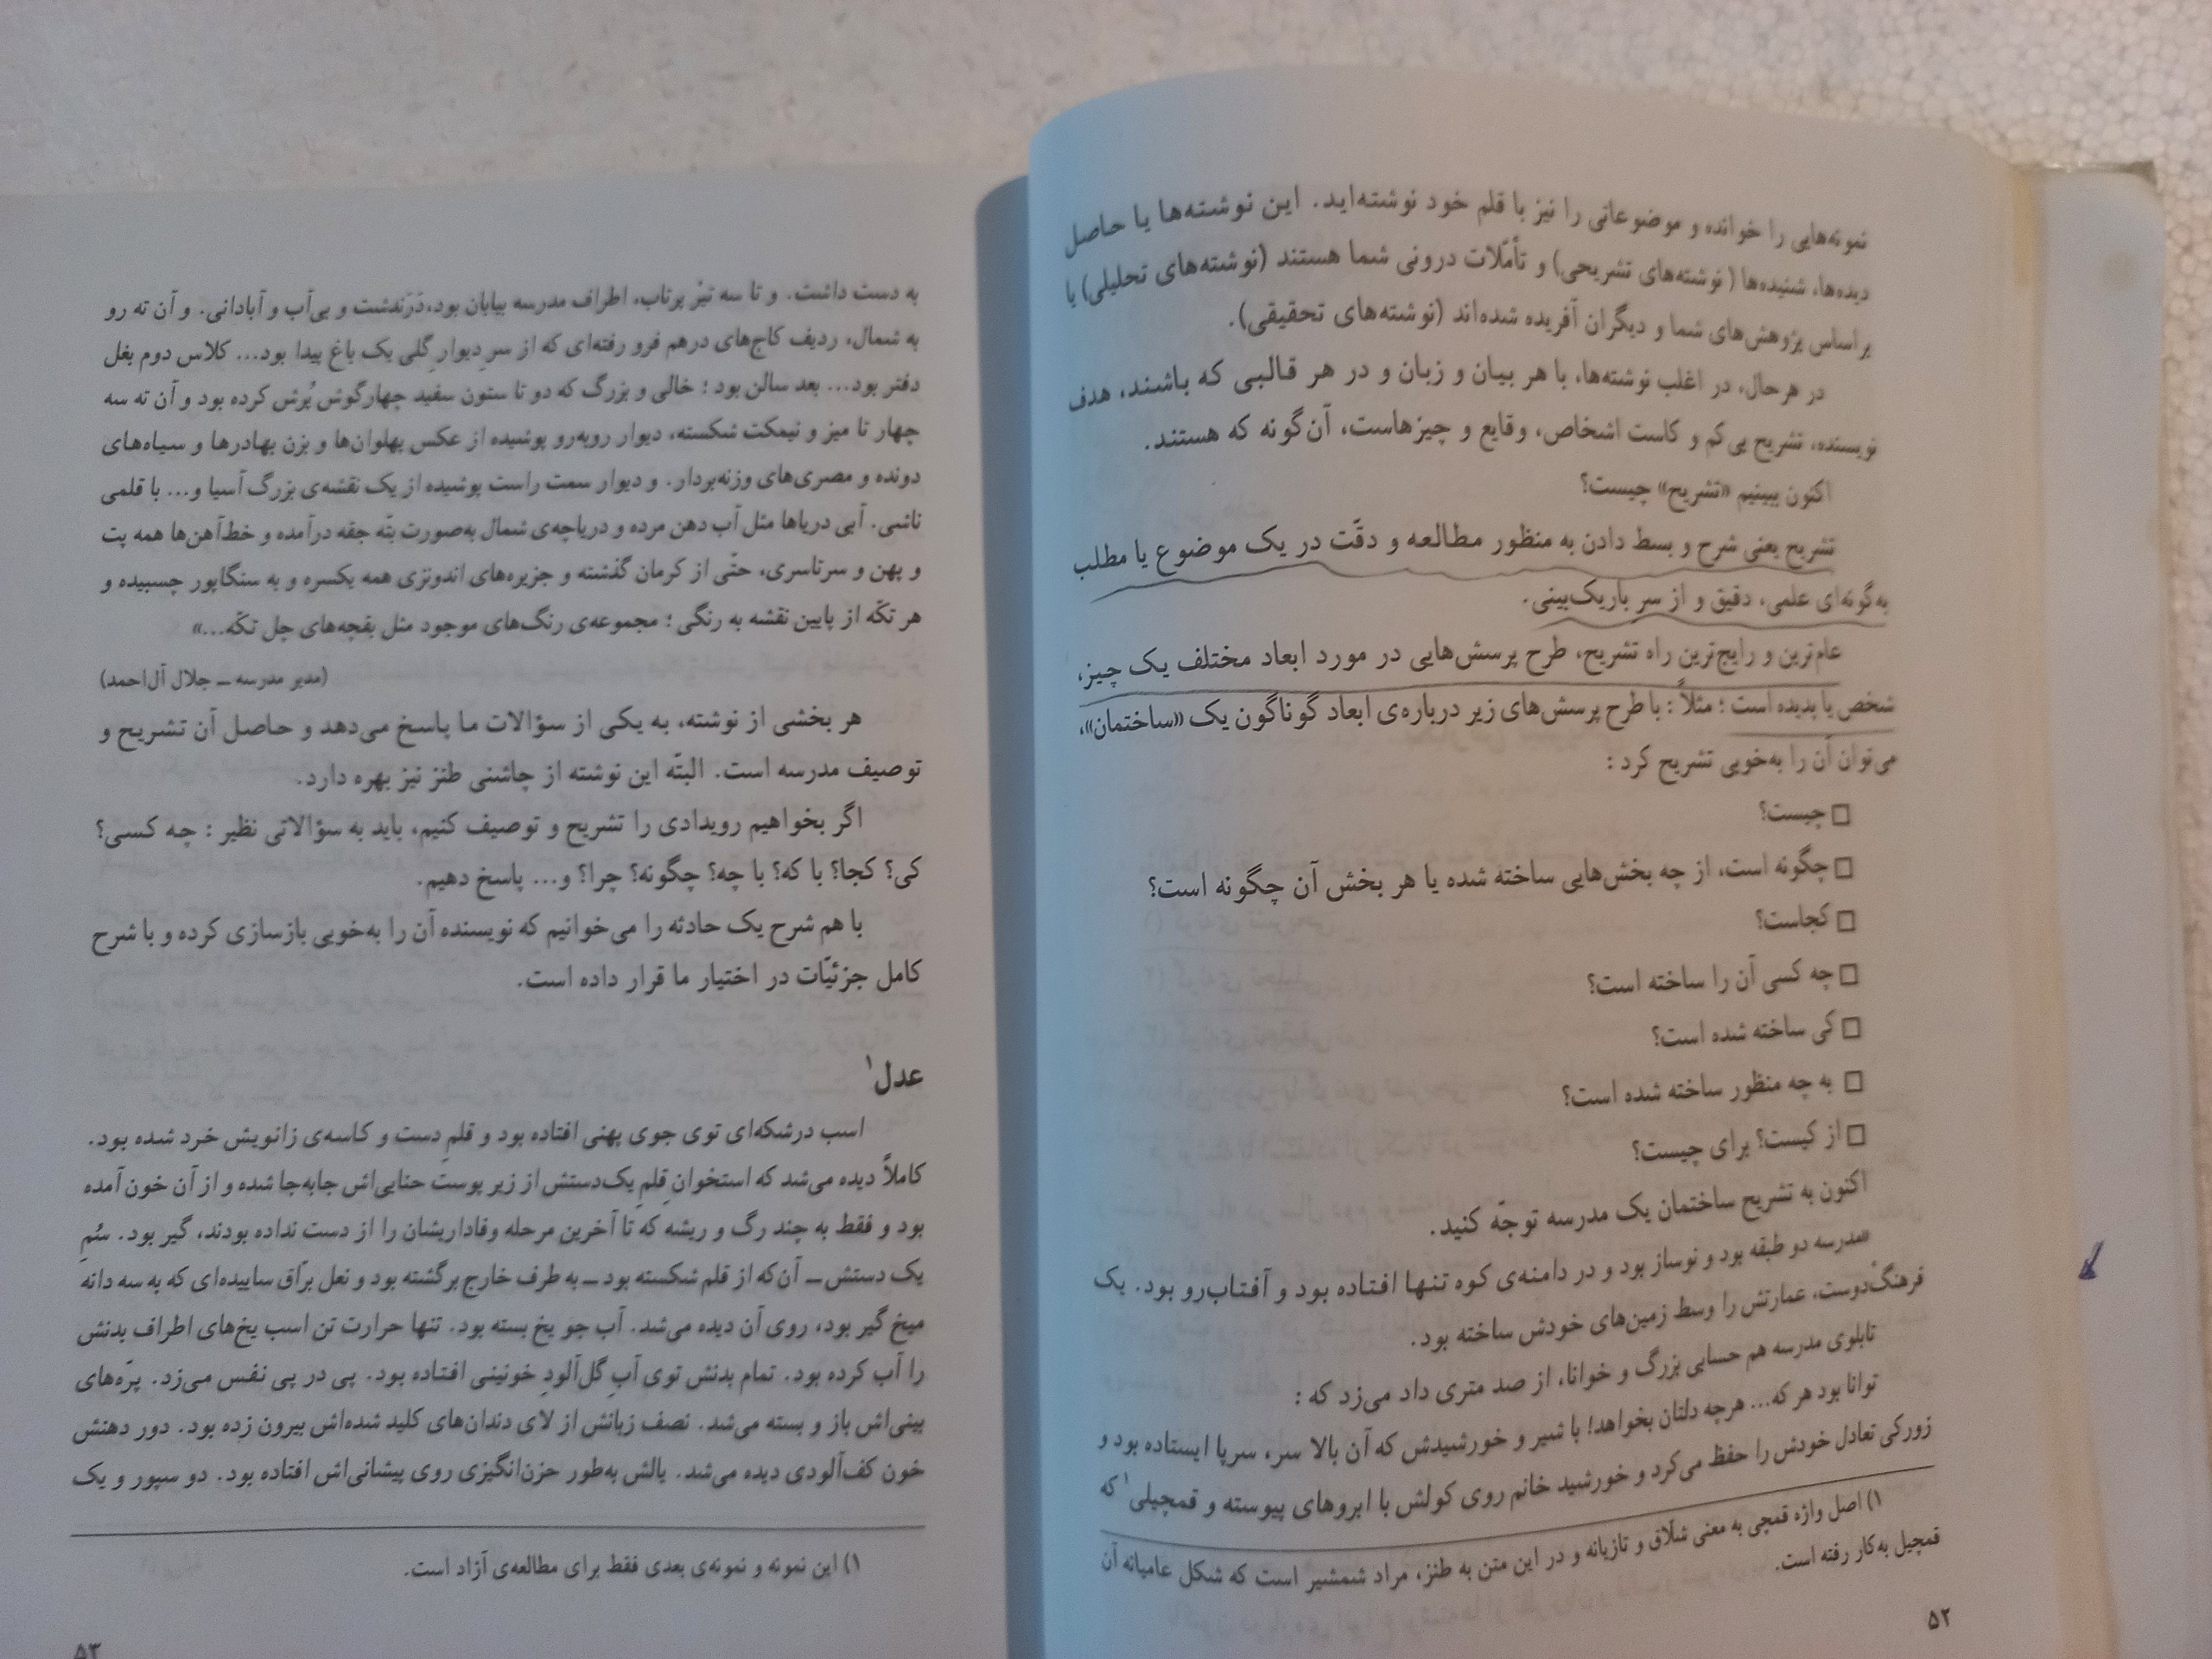 نمونه‌هایی را خوانده و موضوعاتی را نیز با قلم خود نوشته‌اید. این نوشته‌ها یا حاصل
دیده‌ها، شنیده‌ها (نوشته‌های تشریحی) و تأمّلات درونی شما هستند (نوشته‌های تحلیلی) یا
بر اساس پژوهش‌های شما و دیگران آفریده شده‌اند (نوشته‌های تحقیقی).
در هر حال، در اغلب نوشته‌ها، با هر بیان و زبان و در هر قالبی که باشند، هدف
نویسنده، تشریح بی‌کم و کاست اشخاص، وقایع و چیزهاست، آن‌گونه که هستند.
اکنون ببینیم «تشریح» چیست؟
تشریح یعنی شرح و بسط دادن به منظور مطالعه و دقّت در یک موضوع یا مطلب
به‌گونه‌ای علمی، دقیق و از سر باریک‌بینی.
عام‌ترین و رایج‌ترین راه تشریح، طرح پرسش‌هایی در مورد ابعاد مختلف یک چیز،
شخص یا پدیده است؛ مثلاً: با طرح پرسش‌های زیر درباره‌ی ابعاد گوناگون یک «ساختمان»،
می‌توان آن را به‌خوبی تشریح کرد:
□ چیست؟
□ چگونه است، از چه بخش‌هایی ساخته شده یا هر بخش آن چگونه است؟
□ کجاست؟
□ چه کسی آن را ساخته است؟
□ کی ساخته شده است؟
□ به چه منظور ساخته شده است؟
□ از کیست؟ برای چیست؟
اکنون به تشریح ساختمان یک مدرسه توجّه کنید.
«مدرسه دو طبقه بود و نوساز بود و در دامنه‌ی کوه تنها افتاده بود و آفتاب‌رو بود. یک
فرهنگ‌دوست، عمارتش را وسط زمین‌های خودش ساخته بود.
تابلوی مدرسه هم حسابی بزرگ و خوانا، از صد متری داد می‌زد که:
توانا بود هر که... هرچه دلتان بخواهد! با شیر و خورشیدش که آن بالا سر، سرپا ایستاده بود و
زورکی تعادل خودش را حفظ می‌کرد و خورشید خانم روی کولش با ابروهای پیوسته و قمچیلی۱ که
۱) اصل واژه قمچی به معنی شلّاق و تازیانه و در این متن به طنز، مراد شمشیر است که شکل عامیانه آن
قمچیل به‌کار رفته است.
۵۲
به دست داشت. و تا سه تیر پرتاب، اطراف مدرسه بیابان بود، دَرَندشت و بی‌آب و آبادانی. و آن ته رو
به شمال، ردیف کاج‌های درهم فرو رفته‌ای که از سرِ دیوارِ گِلی یک باغ پیدا بود... کلاس دوم بغل
دفتر بود... بعد سالن بود؛ خالی و بزرگ که دو تا ستون سفید چهارگوش پُرش کرده بود و آن ته سه
چهار تا میز و نیمکت شکسته، دیوار روبه‌رو پوشیده از عکس پهلوان‌ها و بزن بهادرها و سیاه‌های
دونده و مصری‌های وزنه‌بردار. و دیوار سمت راست پوشیده از یک نقشه‌ی بزرگ آسیا و... با قلمی
ناشی. آبی دریاها مثل آب دهن مرده و دریاچه‌ی شمال به‌صورت بتّه جقه درآمده و خط‌آهن‌ها همه پت
و پهن و سرتاسری، حتّی از کرمان گذشته و جزیره‌های اندونزی همه یکسره و به سنگاپور چسبیده و
هر تکّه از پایین نقشه به رنگی؛ مجموعه‌ی رنگ‌های موجود مثل بقچه‌های چل تکّه...»
(مدیر مدرسه ـ جلال آل‌احمد)
هر بخشی از نوشته، به یکی از سؤالات ما پاسخ می‌دهد و حاصل آن تشریح و
توصیف مدرسه است. البتّه این نوشته از چاشنی طنز نیز بهره دارد.
اگر بخواهیم رویدادی را تشریح و توصیف کنیم، باید به سؤالاتی نظیر: چه کسی؟
کی؟ کجا؟ با که؟ با چه؟ چگونه؟ چرا؟ و... پاسخ دهیم.
با هم شرح یک حادثه را می‌خوانیم که نویسنده آن را به‌خوبی بازسازی کرده و با شرح
کامل جزئیّات در اختیار ما قرار داده است.
عدل۱
اسب درشکه‌ای توی جوی پهنی افتاده بود و قلمِ دست و کاسه‌ی زانویش خرد شده بود.
کاملاً دیده می‌شد که استخوانِ قلمِ یک‌دستش از زیر پوست حنایی‌اش جابه‌جا شده و از آن خون آمده
بود و فقط به چند رگ و ریشه که تا آخرین مرحله وفاداریشان را از دست نداده بودند، گیر بود. سُمِ
یک دستش ـ آن‌که از قلم شکسته بود ـ به طرف خارج برگشته بود و نعل برّاق ساییده‌ای که به سه دانه
میخ گیر بود، روی آن دیده می‌شد. آب جو یخ بسته بود. تنها حرارت تن اسب یخ‌های اطراف بدنش
را آب کرده بود. تمام بدنش توی آبِ گل‌آلودِ خونینی افتاده بود. پی در پی نفس می‌زد. پرّه‌های
بینی‌اش باز و بسته می‌شد. نصف زبانش از لای دندان‌های کلید شده‌اش بیرون زده بود. دور دهنش
خون کف‌آلودی دیده می‌شد. یالش به‌طور حزن‌انگیزی روی پیشانی‌اش افتاده بود. دو سپور و یک
۱) این نمونه و نمونه‌ی بعدی فقط برای مطالعه‌ی آزاد است.
۵۳